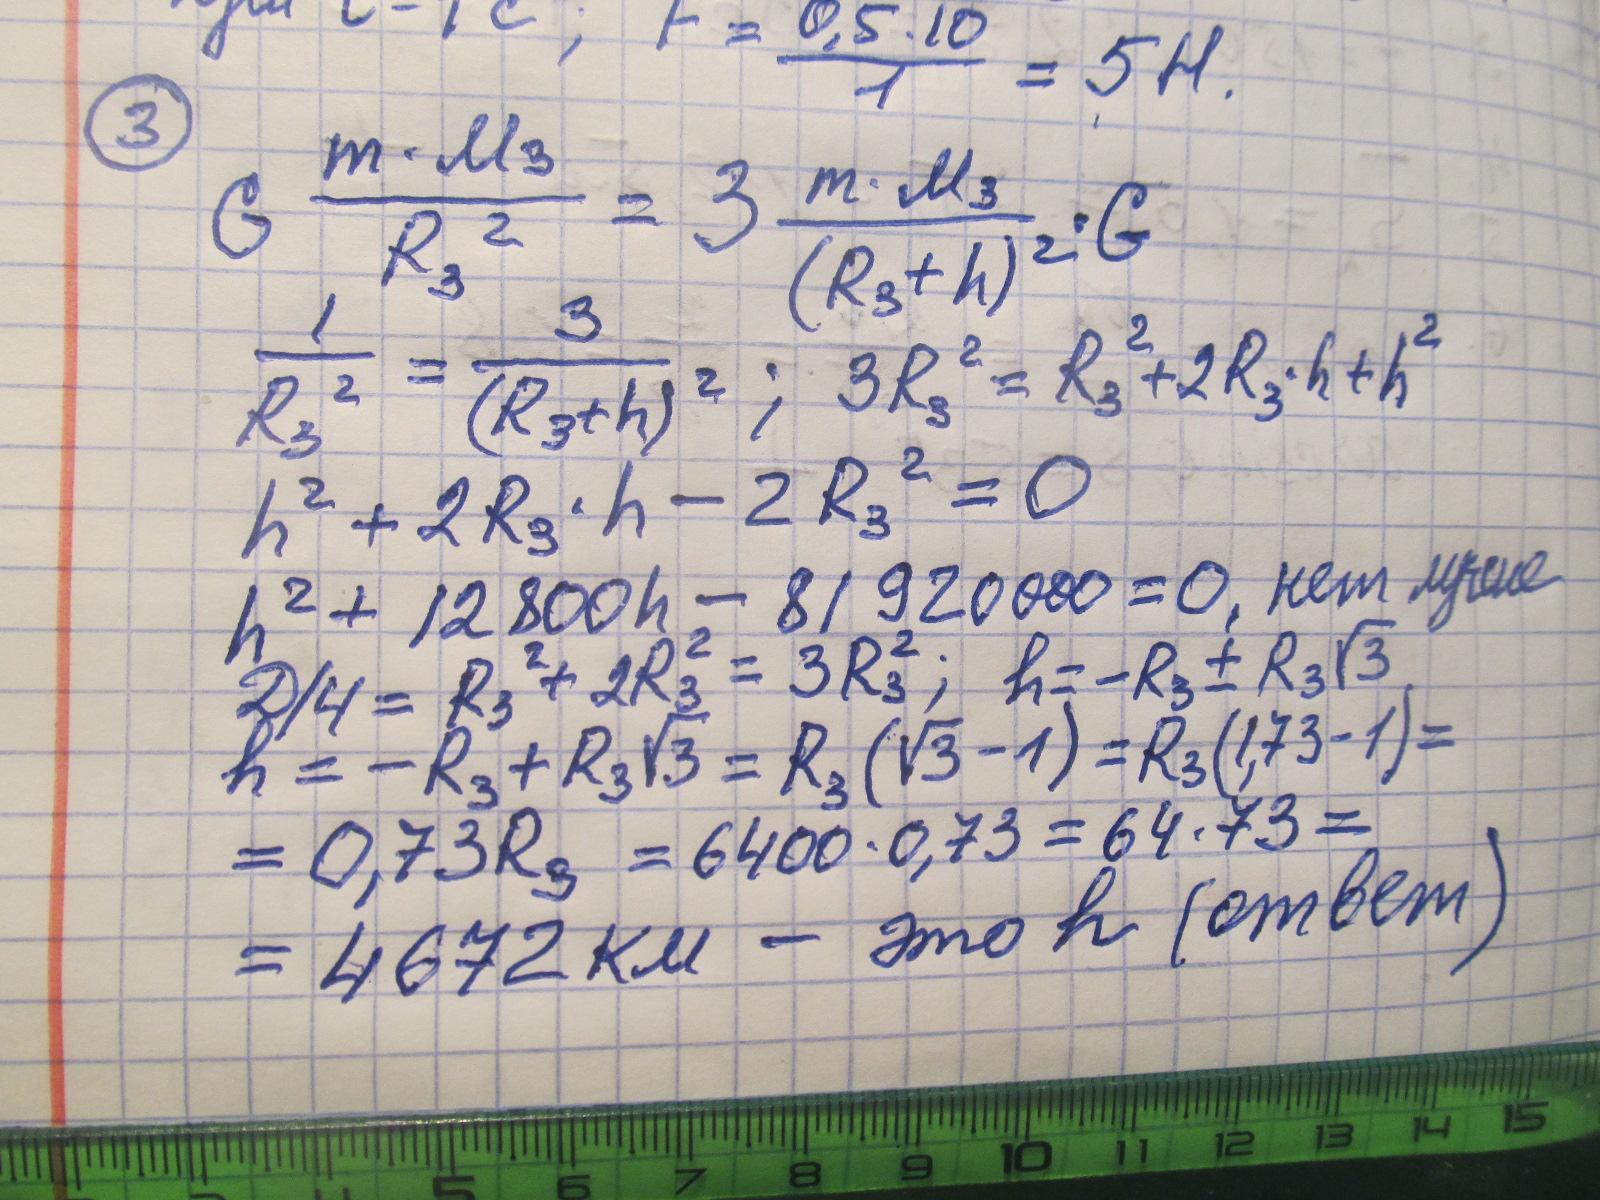 при t=1c; F = 0,5·10/1 = 5Н.
③
G m·M₃/R₃² = 3 m·M₃/(R₃+h)² ·G
1/R₃² = 3/(R₃+h)² ; 3R₃² = R₃²+2R₃·h+h²
h² + 2R₃·h − 2R₃² = 0
h² + 12800h − 81920000 = 0, нет лучше
D/4 = R₃² + 2R₃² = 3R₃²; h = −R₃ ± R₃√3
h = −R₃ + R₃√3 = R₃(√3 − 1) = R₃(1,73 − 1) =
= 0,73R₃ = 6400·0,73 = 64·73 =
= 4672 км − это h (ответ)
5 6 7 8 9 10 11 12 13 14 15